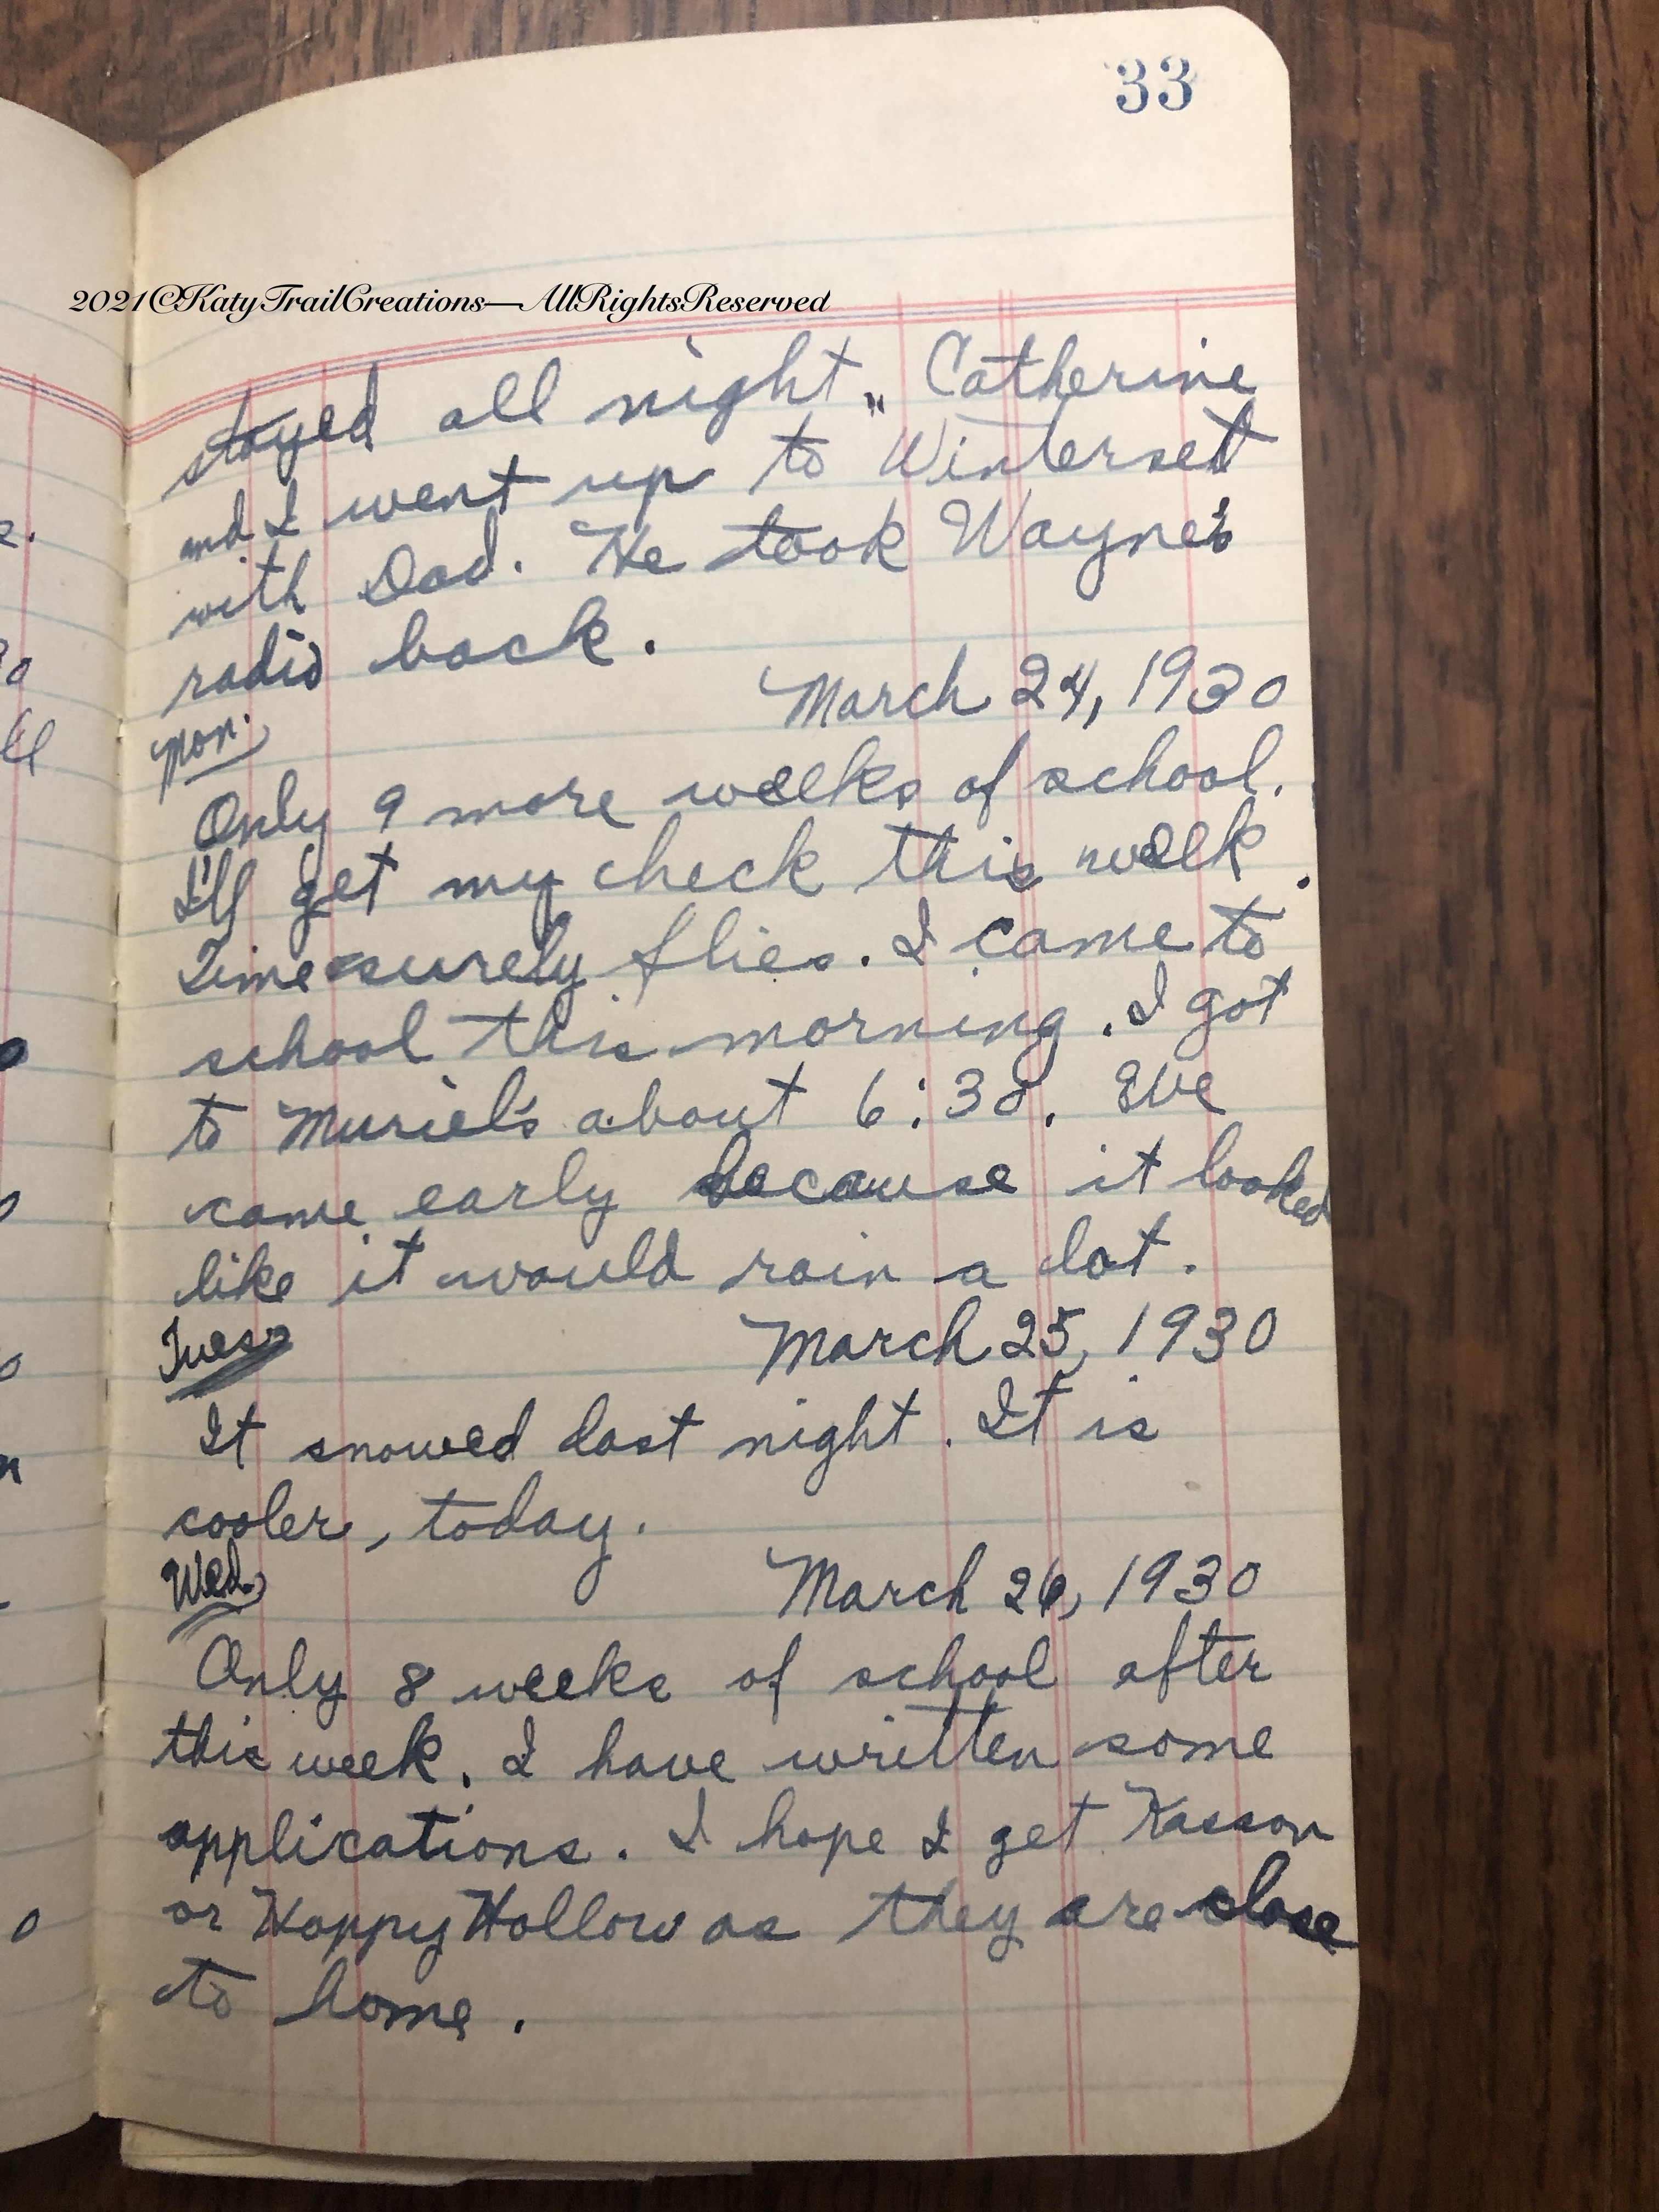 33
2021©KatyTrailCreations—AllRightsReserved
stayed all night. Catherine
and I went up to Winterset
with Dad. He took Wayne's
radio back.
March 24, 1930
Mon.
Only 9 more weeks of school.
I'll get my check this week.
Time surely flies. I came to
school this morning. I got
to Muriel's about 6:30. We
came early because it looked
like it would rain a lot.
Tues.
March 25, 1930
It snowed last night. It is
cooler, today.
Wed.
March 26, 1930
Only 8 weeks of school after
this week. I have written some
applications. I hope I get Kasson
or Happy Hollow as they are close
to home.